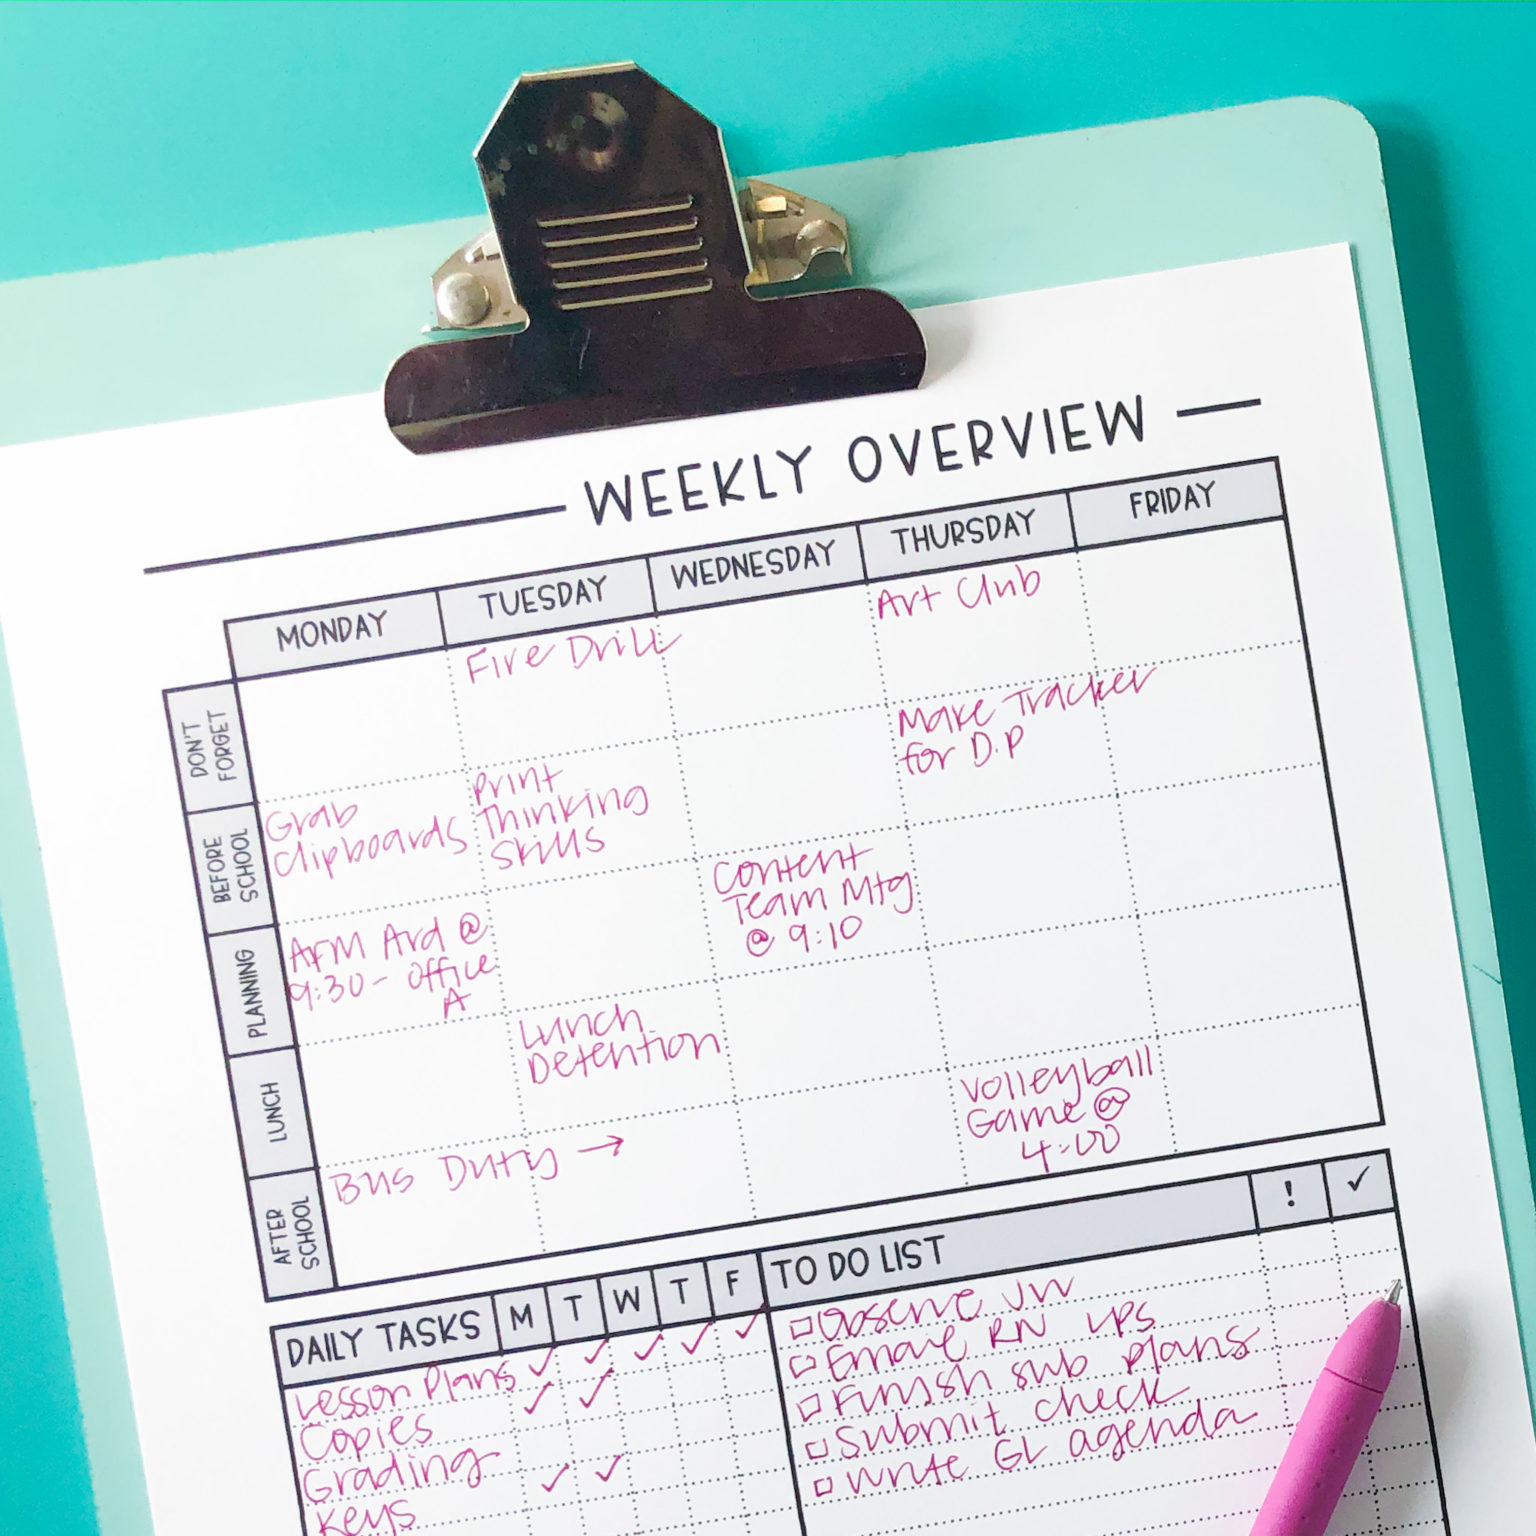 WEEKLY OVERVIEW
MONDAY TUESDAY WEDNESDAY THURSDAY FRIDAY
DON'T
FORGET
Fire Drill
Art Club
BEFORE
SCHOOL
Grab
Clipboards
Print
Thinking
Skills
Make Tracker
for D.P
PLANNING
AFM Ard @
9:30 - Office
A
Content
Team Mtg
@ 9:10
LUNCH
Lunch
Detention
AFTER
SCHOOL
Bus Duty →
Volleyball
Game @
4:00
DAILY TASKS M T W T F
Lesson Plans ✓ ✓ ✓ ✓ ✓
Copies ✓ ✓
Grading
Keys ✓ ✓
TO DO LIST ! ✓
Observe JW
Email RN LPs
Finish sub plans
Submit check
Write GL agenda